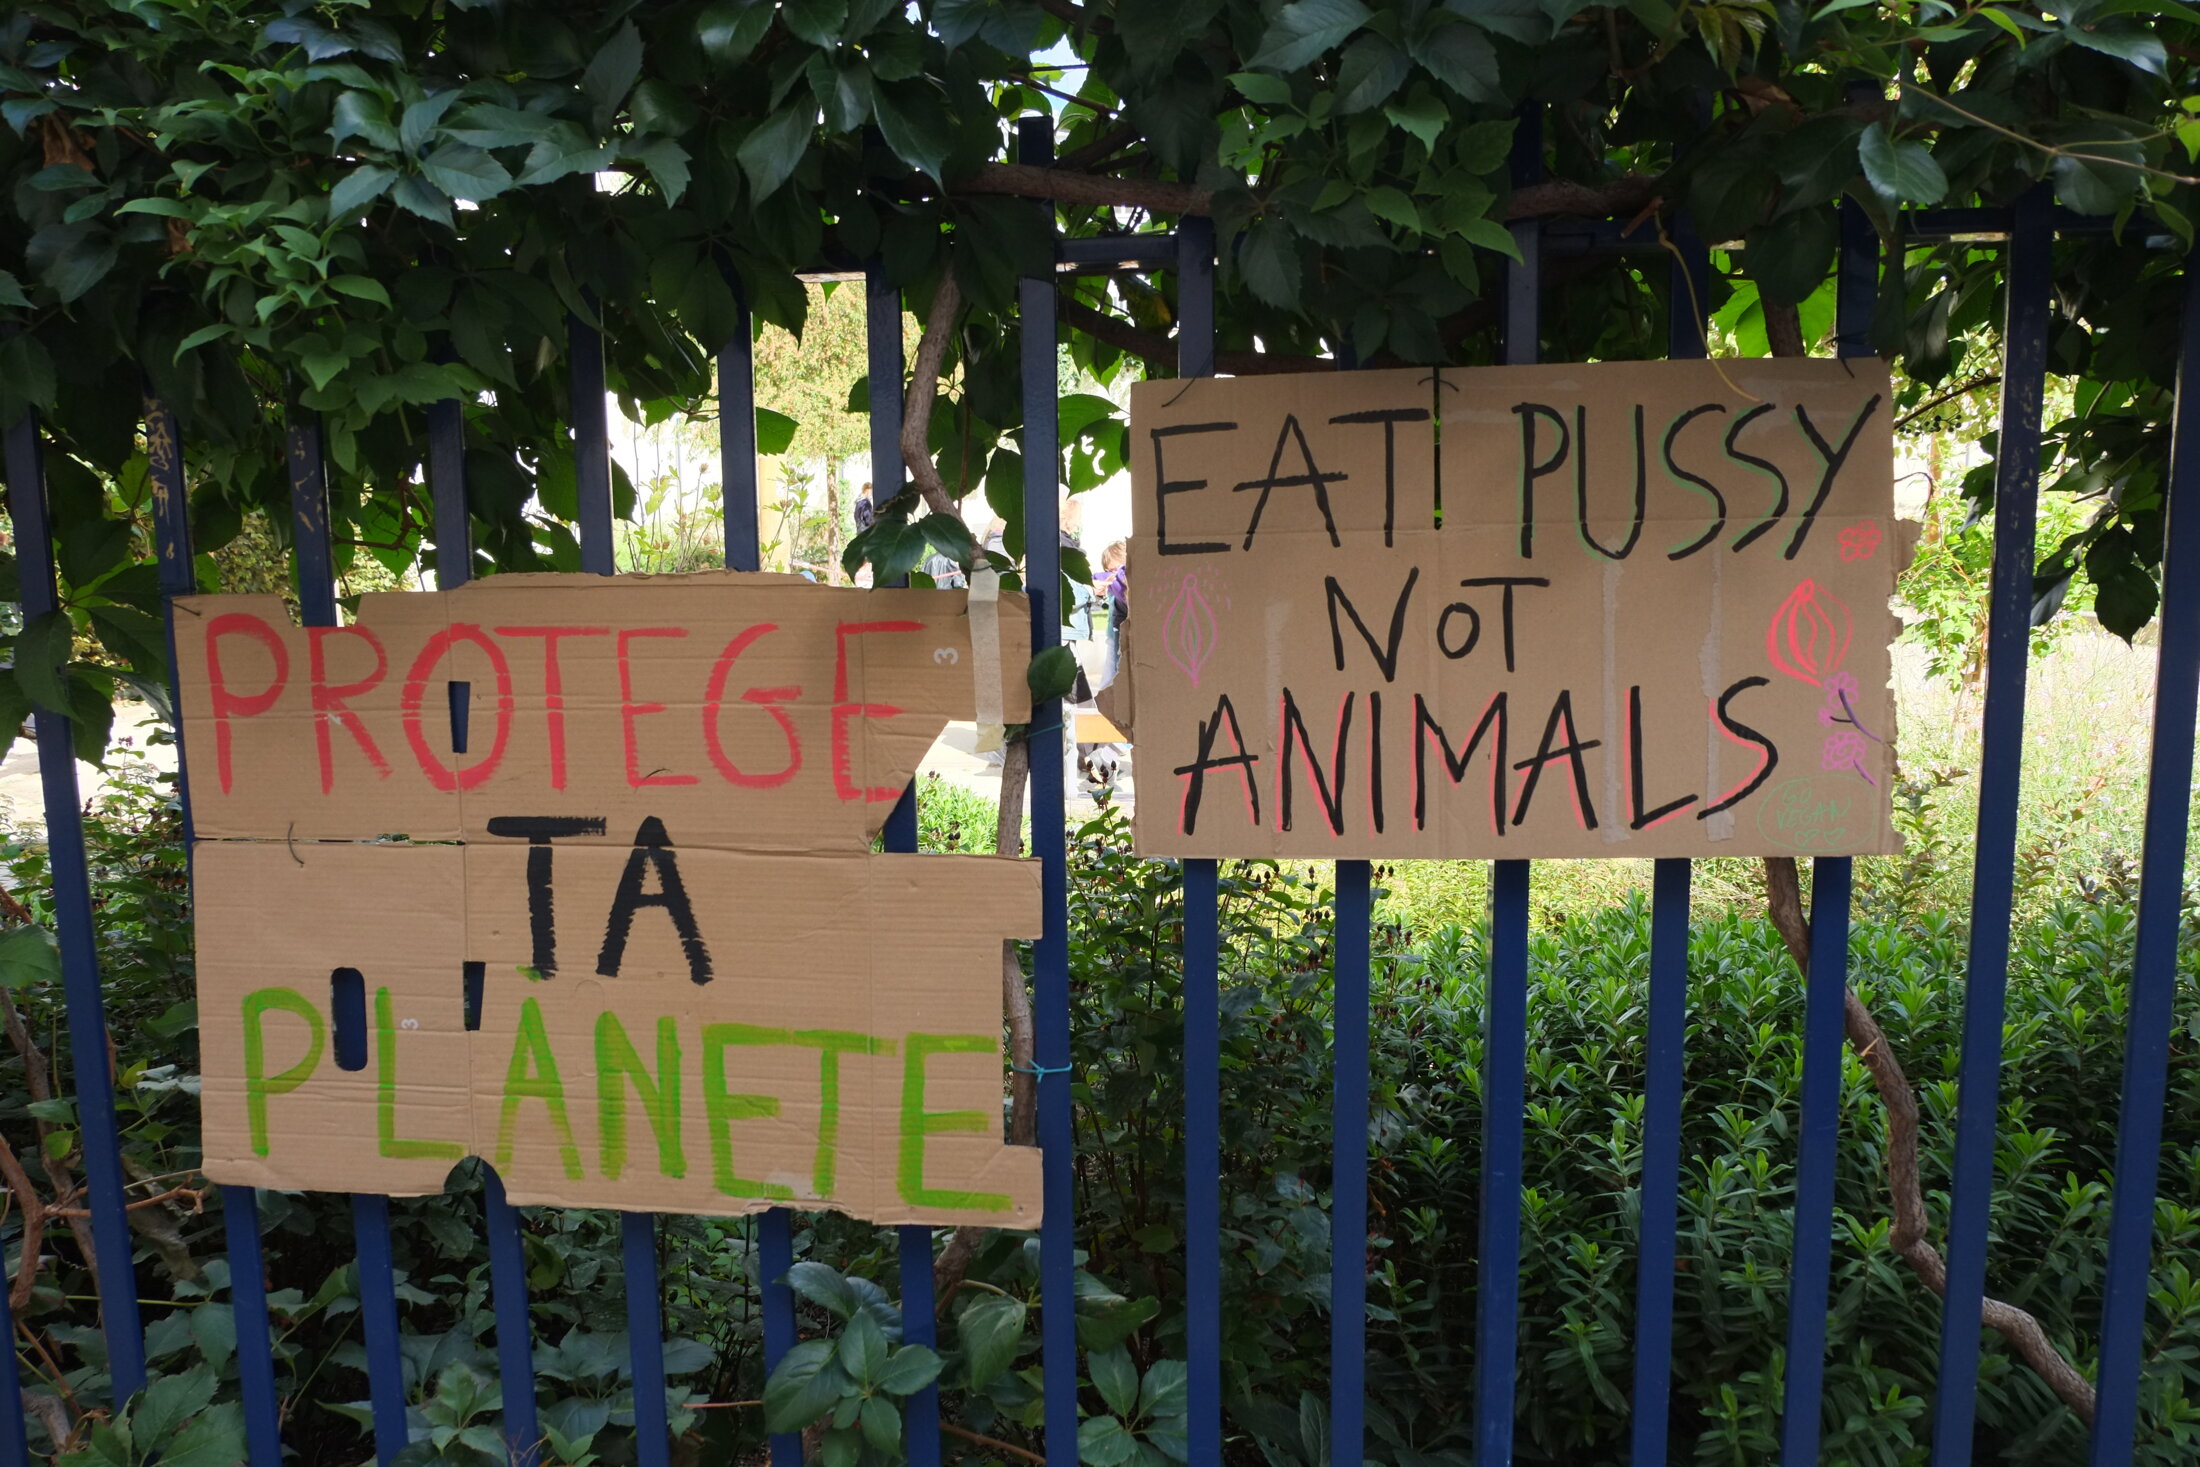 PROTEGE
TA
PLANETE
EAT PUSSY
NOT
ANIMALS
GO
VEGAN
3
3